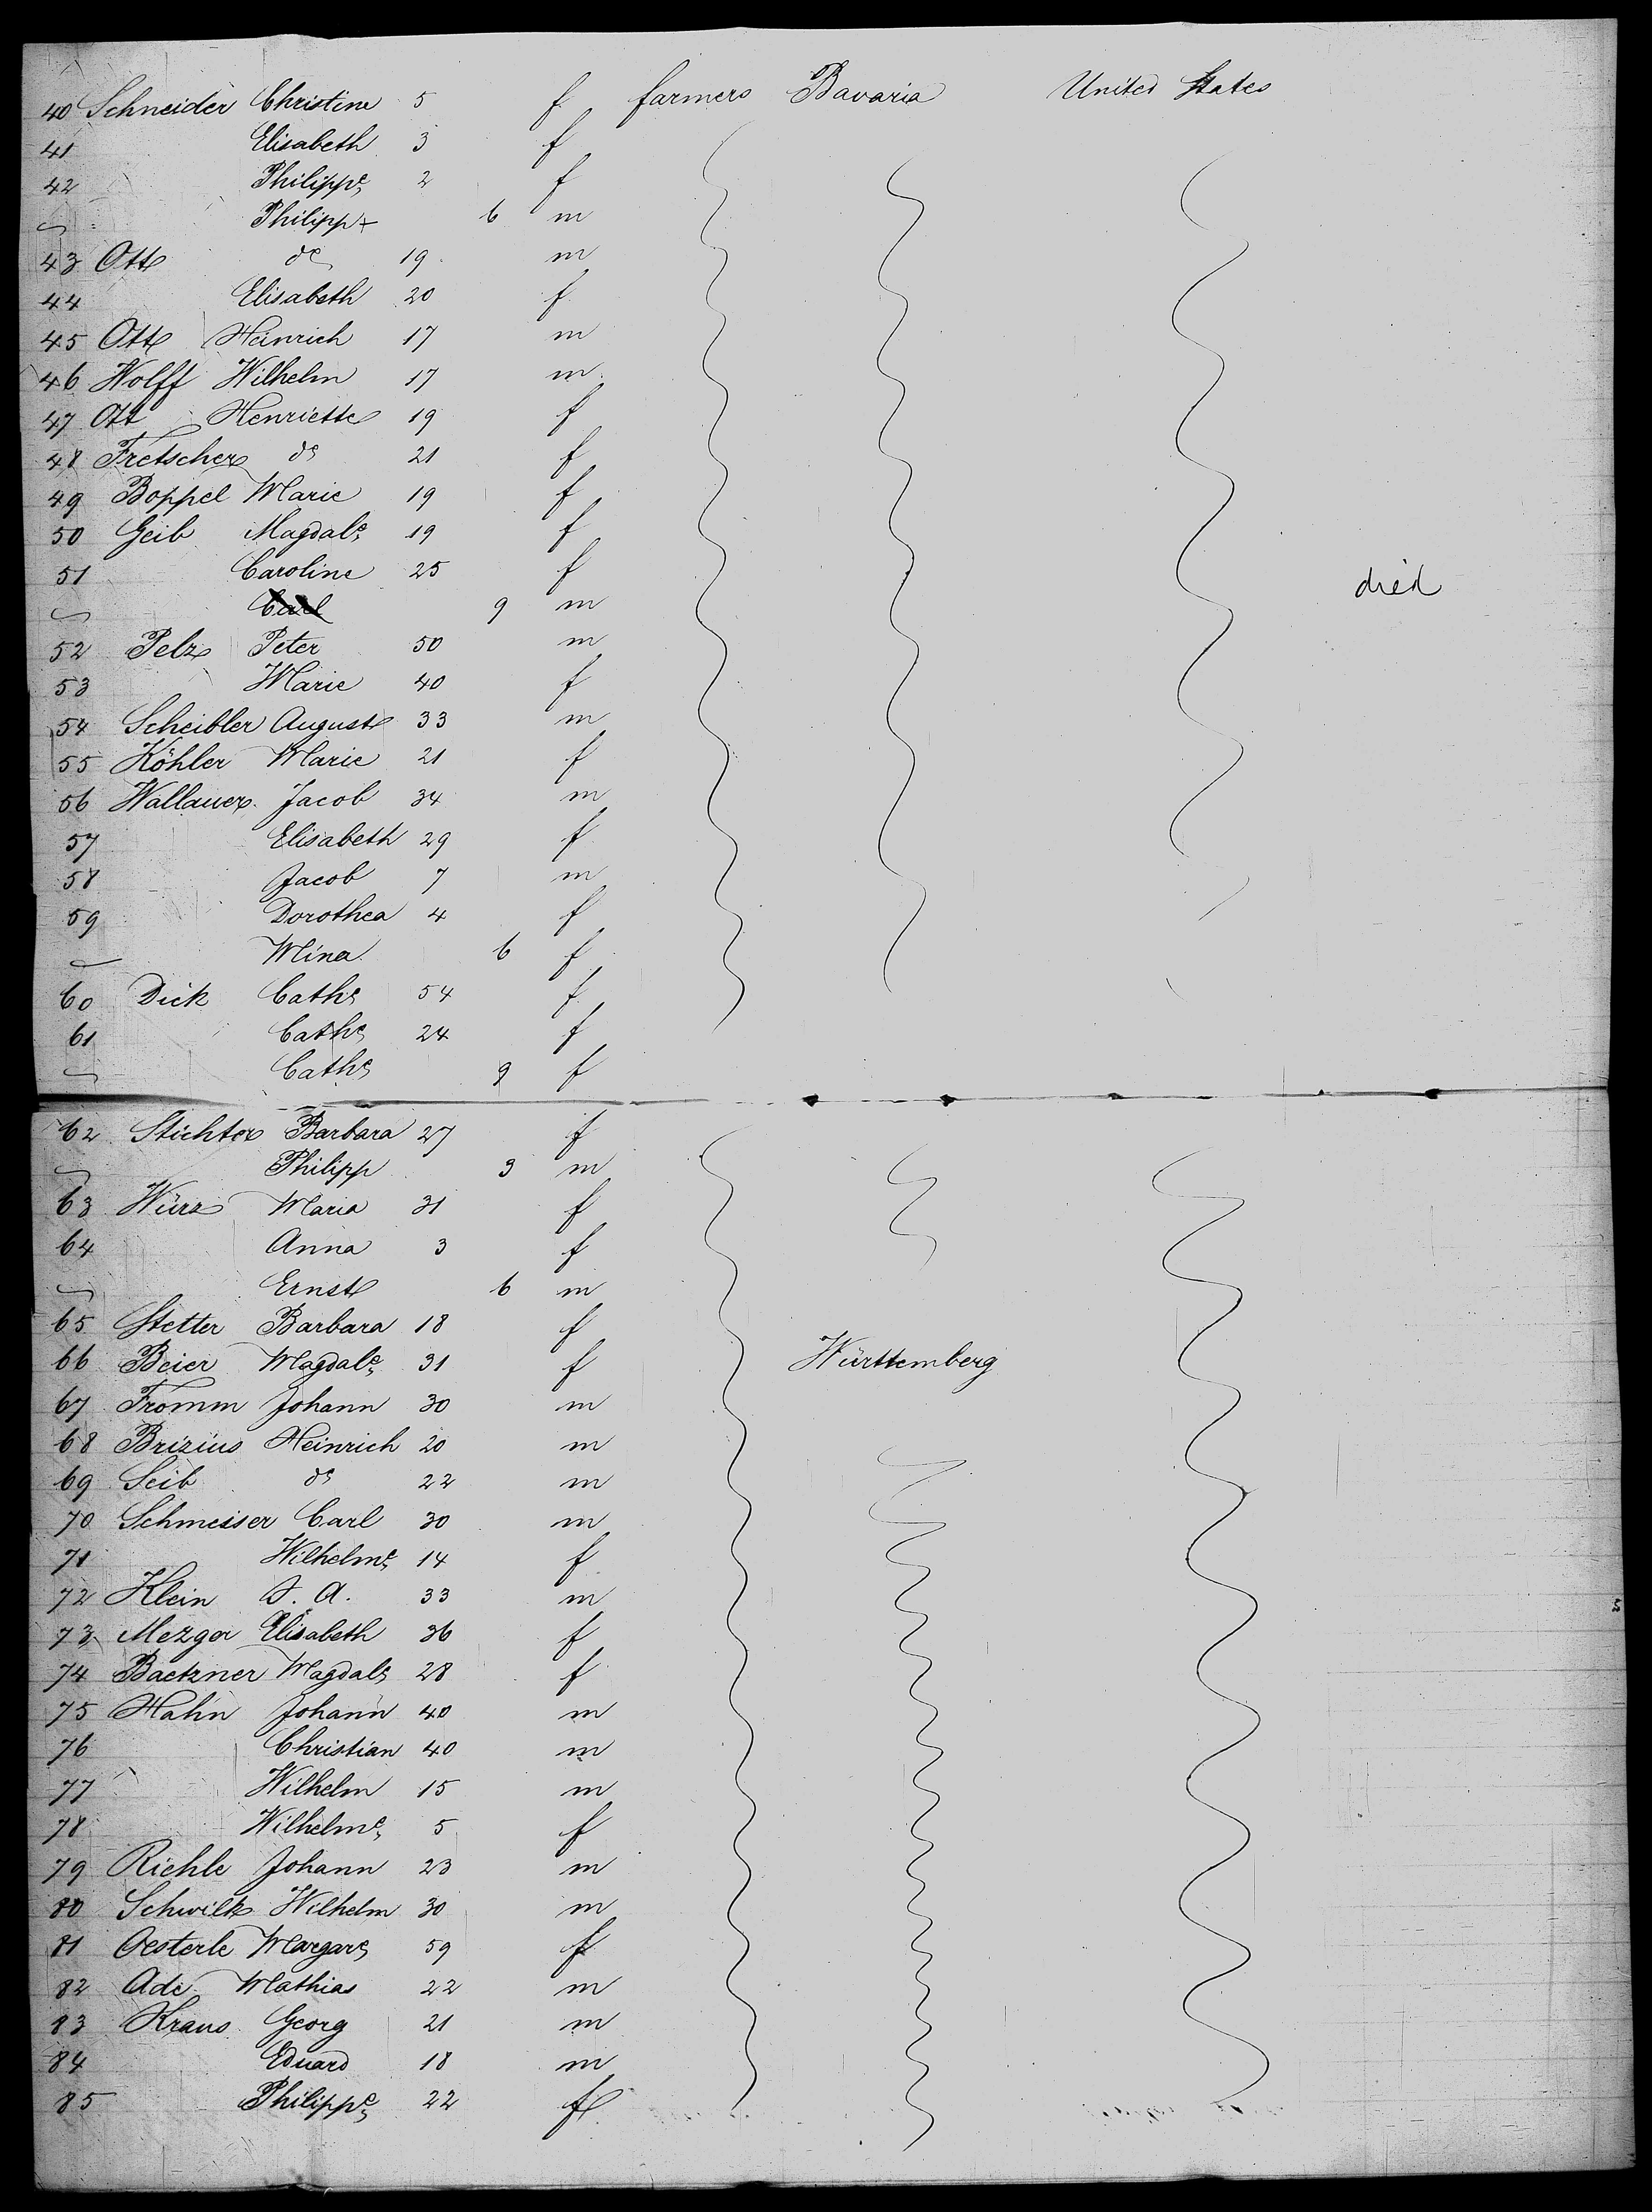 40 Schneider Christine 5 f farmers Bavaria United States
41 Elisabeth 3 f
42 Philippe 2 f
Philipp 6 m
43 Ott do 19 m
44 Elisabeth 20 f
45 Ott Heinrich 17 m
46 Wolff Wilhelm 17 m
47 Ott Henriette 19 f
48 Fretscher do 21 f
49 Boppel Marie 19 f
50 Geib Magdale 19 f
51 Caroline 25 f
Carl 9 m died
52 Pelz Peter 50 m
53 Marie 40 f
54 Scheibler August 33 m
55 Köhler Marie 21 f
56 Wallauer Jacob 34 m
57 Elisabeth 29 f
58 Jacob 7 m
59 Dorothea 4 f
Mina 6 f
60 Dick Cathe 54 f
61 Cathe 24 f
Cathe 9 f
62 Stichter Barbara 27 f
Philipp 3 m
63 Würz Maria 31 f
64 Anna 3 f
Ernst 6 m
65 Stetter Barbara 18 f
66 Beier Magdale 31 f Württemberg
67 Fromm Johann 30 m
68 Brizius Heinrich 20 m
69 Seib do 22 m
70 Schmeisser Carl 30 m
71 Wilhelme 14 f
72 Klein A. 33 m
73 Mezger Elisabeth 36 f
74 Baetzner Magdale 28 f
75 Hahn Johann 40 m
76 Christian 40 m
77 Wilhelm 15 m
78 Wilhelme 5 f
79 Riehle Johann 23 m
80 Schwilk Wilhelm 30 m
81 Oesterle Margare 59 f
82 Ade Mathias 22 m
83 Kraus Georg 21 m
84 Eduard 18 m
85 Philippe 22 f